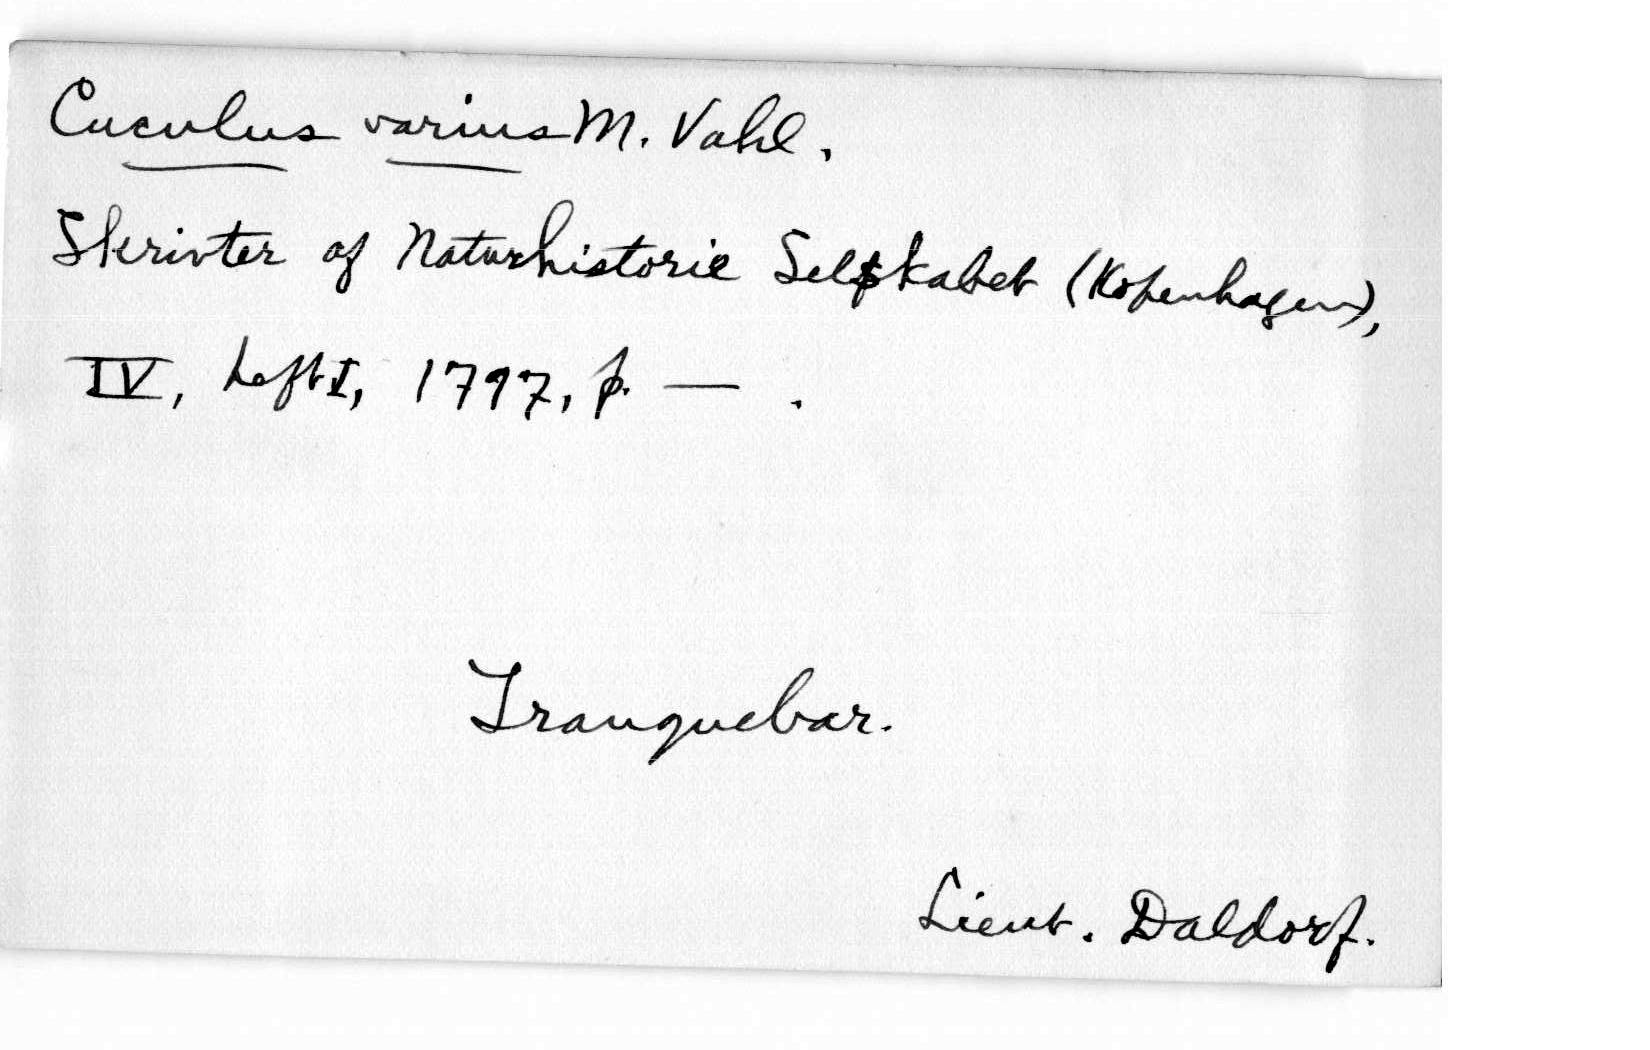 Cuculus varius M. Vahl.
Skrivter af Naturhistorie Selskabet (Kopenhagen),
IV, heft I, 1797, p. — .
Tranquebar.
Lieut. Daldorf.